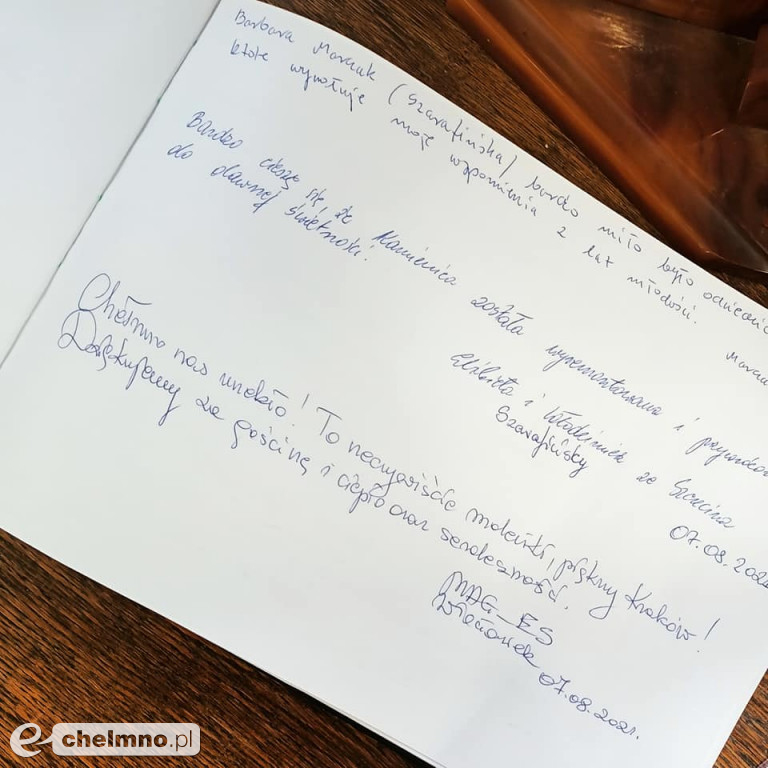 Barbara Marczuk (Szarafińska) bardzo miło było odwiedzić
które wywołuje moje wspomnienia z lat młodości.
Bardzo cieszę się, że Kamienica została wyremontowana i
do dawnej świetności!
Elżbieta i Włodzimierz ze Szczecina
Szarafińscy
07.08.202
Chełmno nas urzekło! To rzeczywiście maleńki, piękny Kraków!
Dziękujemy za gościnę i ciepło oraz serdeczność.
MAG_ES
07.08.2021r.
e-chelmno.pl